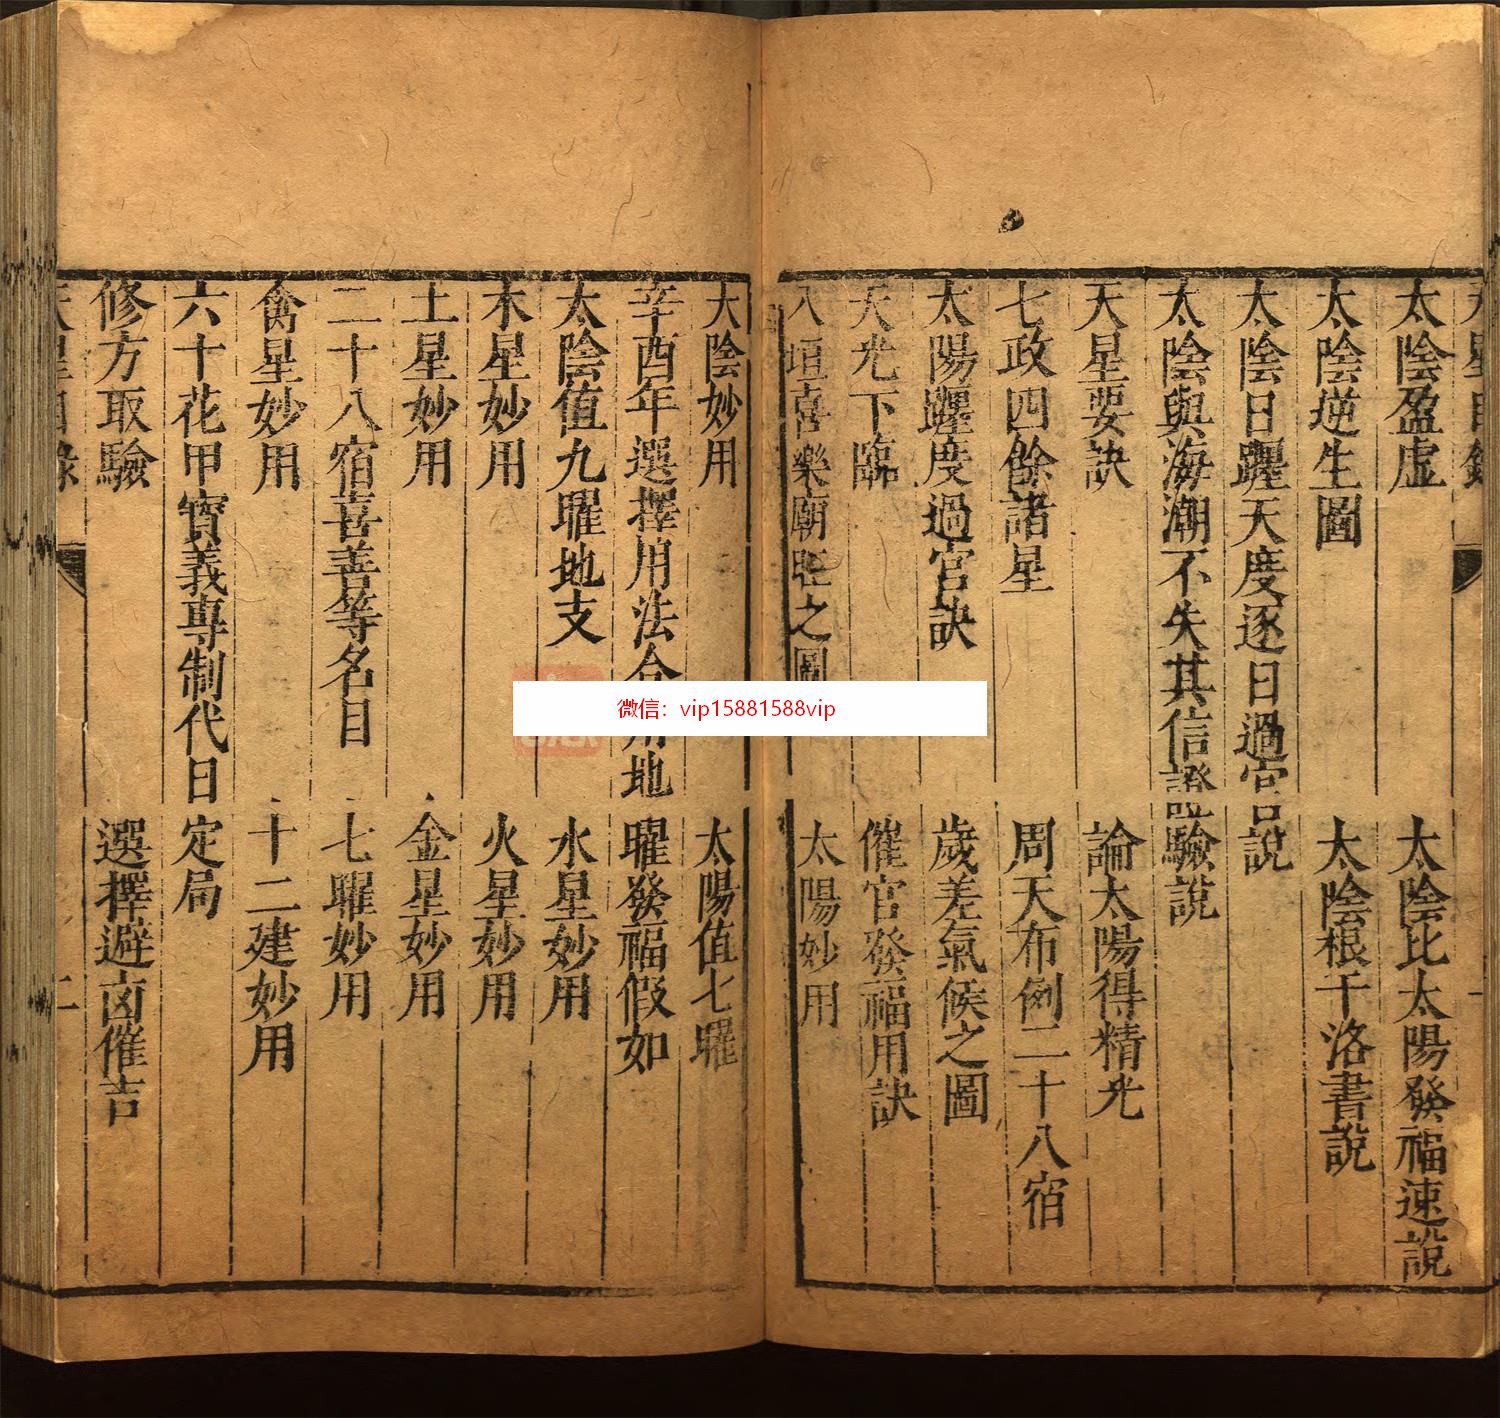 天星目錄
太陰盈虛　太陰比太陽發福速說
太陰逆生圖　太陰根干洛書說
太陰日躔天度逐日過宮說
太陰與海潮不失其信證驗說
天星要訣　論太陽得精光
七政四餘諸星　周天布例二十八宿
太陽躔度過宮訣　歲差氣候之圖
天光下臨　催官發福用訣
八垣喜樂廟旺之圖　太陽妙用
太陰妙用　太陽值七曜
辛酉年選擇用法合用地　曜發福假如
太陰值九曜地支　水星妙用
木星妙用　火星妙用
土星妙用　金星妙用
二十八宿喜善等名目　七曜妙用
禽星妙用　十二建妙用
六十花甲寳義專制代日　定局
修方取驗　選擇避凶催吉
天星目錄　二
微信：vip15881588vip